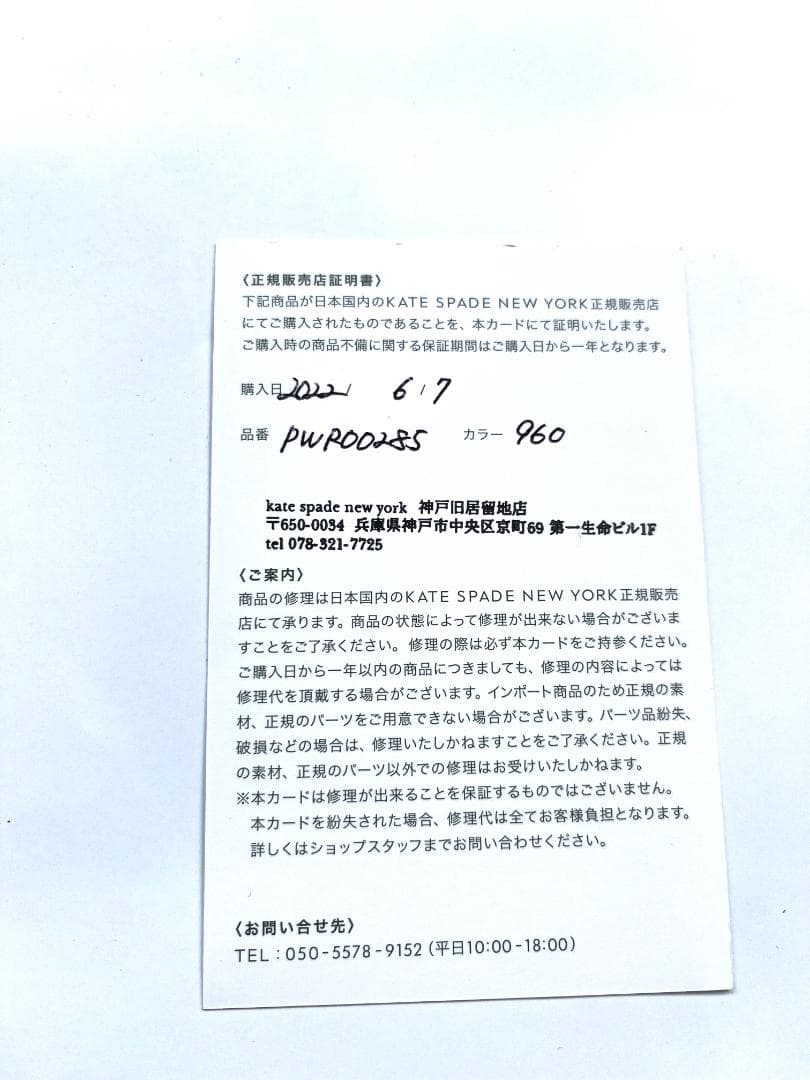 〈正規販売店証明書〉
下記商品が日本国内のKATE SPADE NEW YORK正規販売店
にてご購入されたものであることを、本カードにて証明いたします。
ご購入時の商品不備に関する保証期間はご購入日から一年となります。
購入日 2022/ 6 / 7
品番 PWR00285 カラー 960
kate spade new york 神戸旧居留地店
〒650-0034 兵庫県神戸市中央区京町69 第一生命ビル1F
tel 078-321-7725
〈ご案内〉
商品の修理は日本国内のKATE SPADE NEW YORK正規販売
店にて承ります。商品の状態によって修理が出来ない場合がございま
すことをご了承ください。修理の際は必ず本カードをご持参ください。
ご購入日から一年以内の商品につきましても、修理の内容によっては
修理代を頂戴する場合がございます。インポート商品のため正規の素
材、正規のパーツをご用意できない場合がございます。パーツ品紛失、
破損などの場合は、修理いたしかねますことをご了承ください。正規
の素材、正規のパーツ以外での修理はお受けいたしかねます。
※本カードは修理が出来ることを保証するものではございません。
本カードを紛失された場合、修理代は全てお客様負担となります。
詳しくはショップスタッフまでお問い合わせください。
〈お問い合せ先〉
TEL：050-5578-9152（平日10:00-18:00）